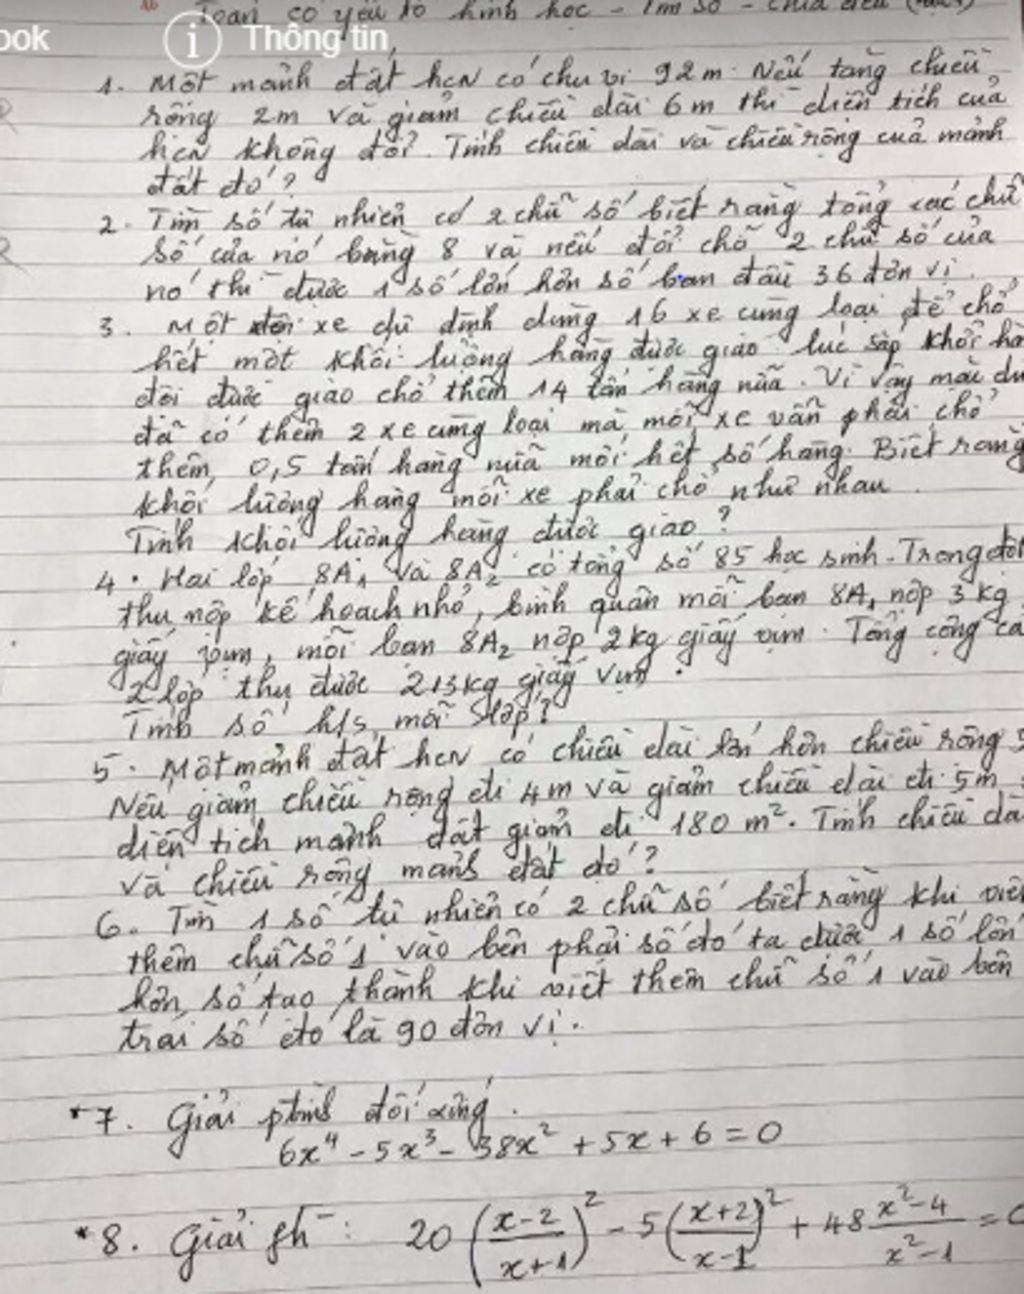 Toán có yếu tố hình học - Tìm số - chia đều
ook
Thông tin
1. Một mảnh đất hcn có chu vi 92m. Nếu tăng chiều
rộng 2m và giảm chiều dài 6m thì diện tích của
hcn không đổi. Tính chiều dài và chiều rộng của mảnh
đất đó?
2. Tìm số tự nhiên có 2 chữ số biết rằng tổng các chữ
số của nó bằng 8 và nếu đổi chỗ 2 chữ số của
nó thì được 1 số lớn hơn số ban đầu 36 đơn vị.
3. Một đội xe dự định dùng 16 xe cùng loại để chở
hết một khối lượng hàng được giao. lúc sắp khởi hà
đội được giao chở thêm 14 tấn hàng nữa. Vì vậy mặc dù
đã có thêm 2 xe cùng loại mà mỗi xe vẫn phải chở
thêm 0,5 tấn hàng nữa mới hết số hàng. Biết rằng
khối lượng hàng mỗi xe phải chở như nhau.
Tính khối lượng hàng được giao?
4. Hai lớp 8A₁ và 8A₂ có tổng số 85 học sinh. Trong đợt
thu nộp kế hoạch nhỏ, bình quân mỗi bạn 8A₁ nộp 3kg
giấy vụn, mỗi bạn 8A₂ nộp 2kg giấy vụn. Tổng cộng cả
2 lớp thu được 213kg giấy vụn.
Tính số h/s mỗi lớp?
5. Một mảnh đất hcn có chiều dài lớn hơn chiều rộng 5
Nếu giảm chiều rộng đi 4m và giảm chiều dài đi 5m
diện tích mảnh đất giảm đi 180 m². Tính chiều dà
và chiều rộng mảnh đất đó?
6. Tìm 1 số tự nhiên có 2 chữ số biết rằng khi viế
thêm chữ số 1 vào bên phải số đó ta được 1 số lớn
hơn số tạo thành khi viết thêm chữ số 1 vào bên
trái số đó là 90 đơn vị.
*7. Giải ptrình đối xứng.
6x⁴ - 5x³ - 38x² + 5x + 6 = 0
*8. Giải ph: 20 ((x-2)/(x+1))² - 5 ((x+2)/(x-1))² + 48 (x²-4)/(x²-1) = 0